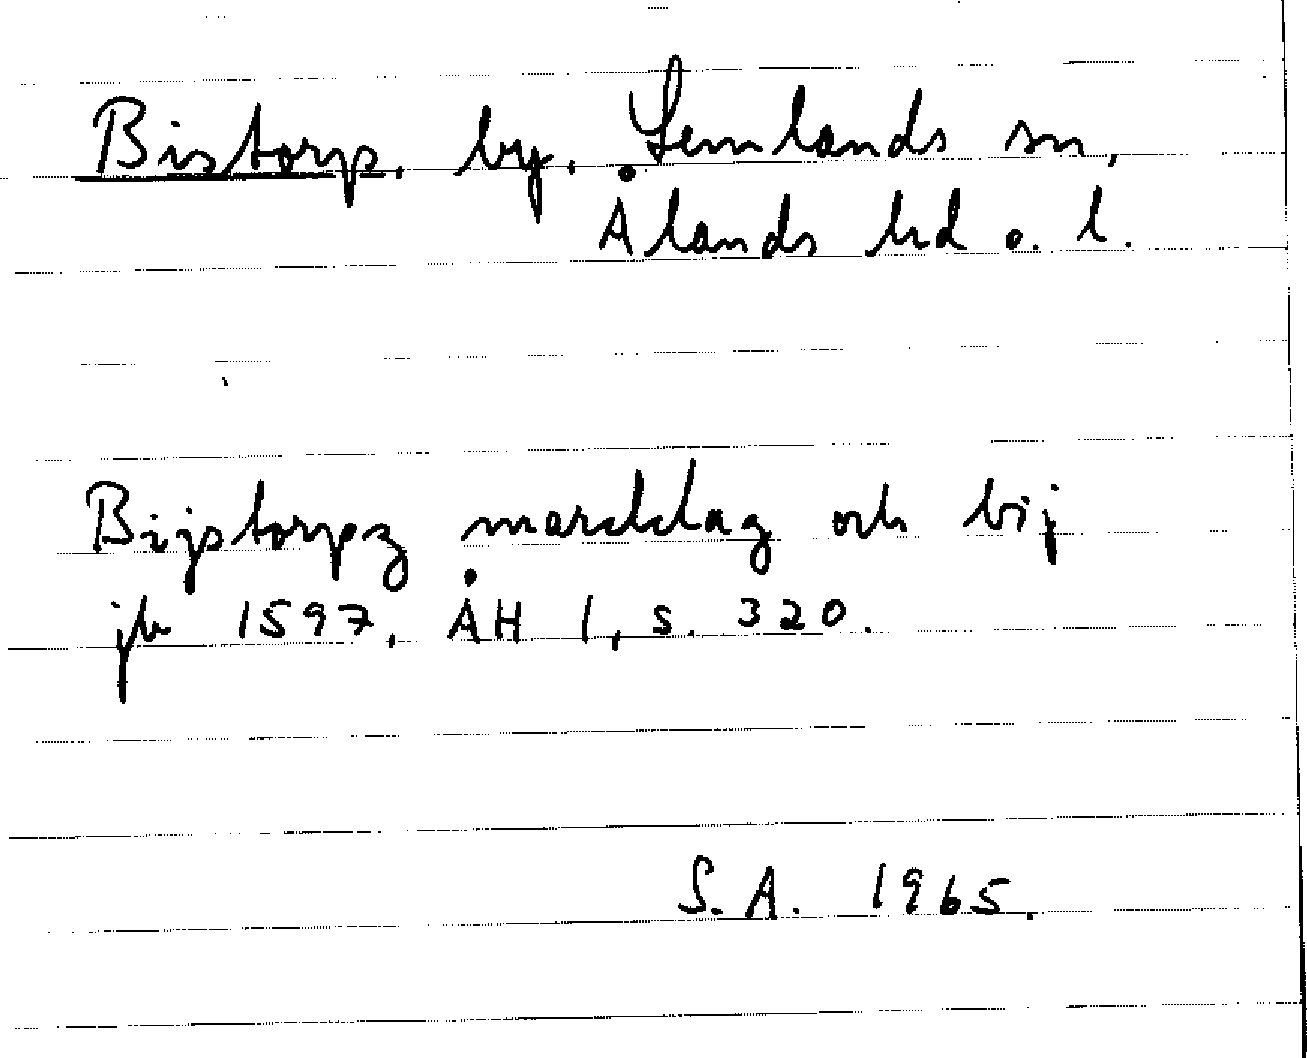 Bistorp, by, Lemlands sn,
Ålands hd o. l.
Bijstorpz marcklag och bij
jb 1597, ÅH 1, s. 320.
S.A. 1965.